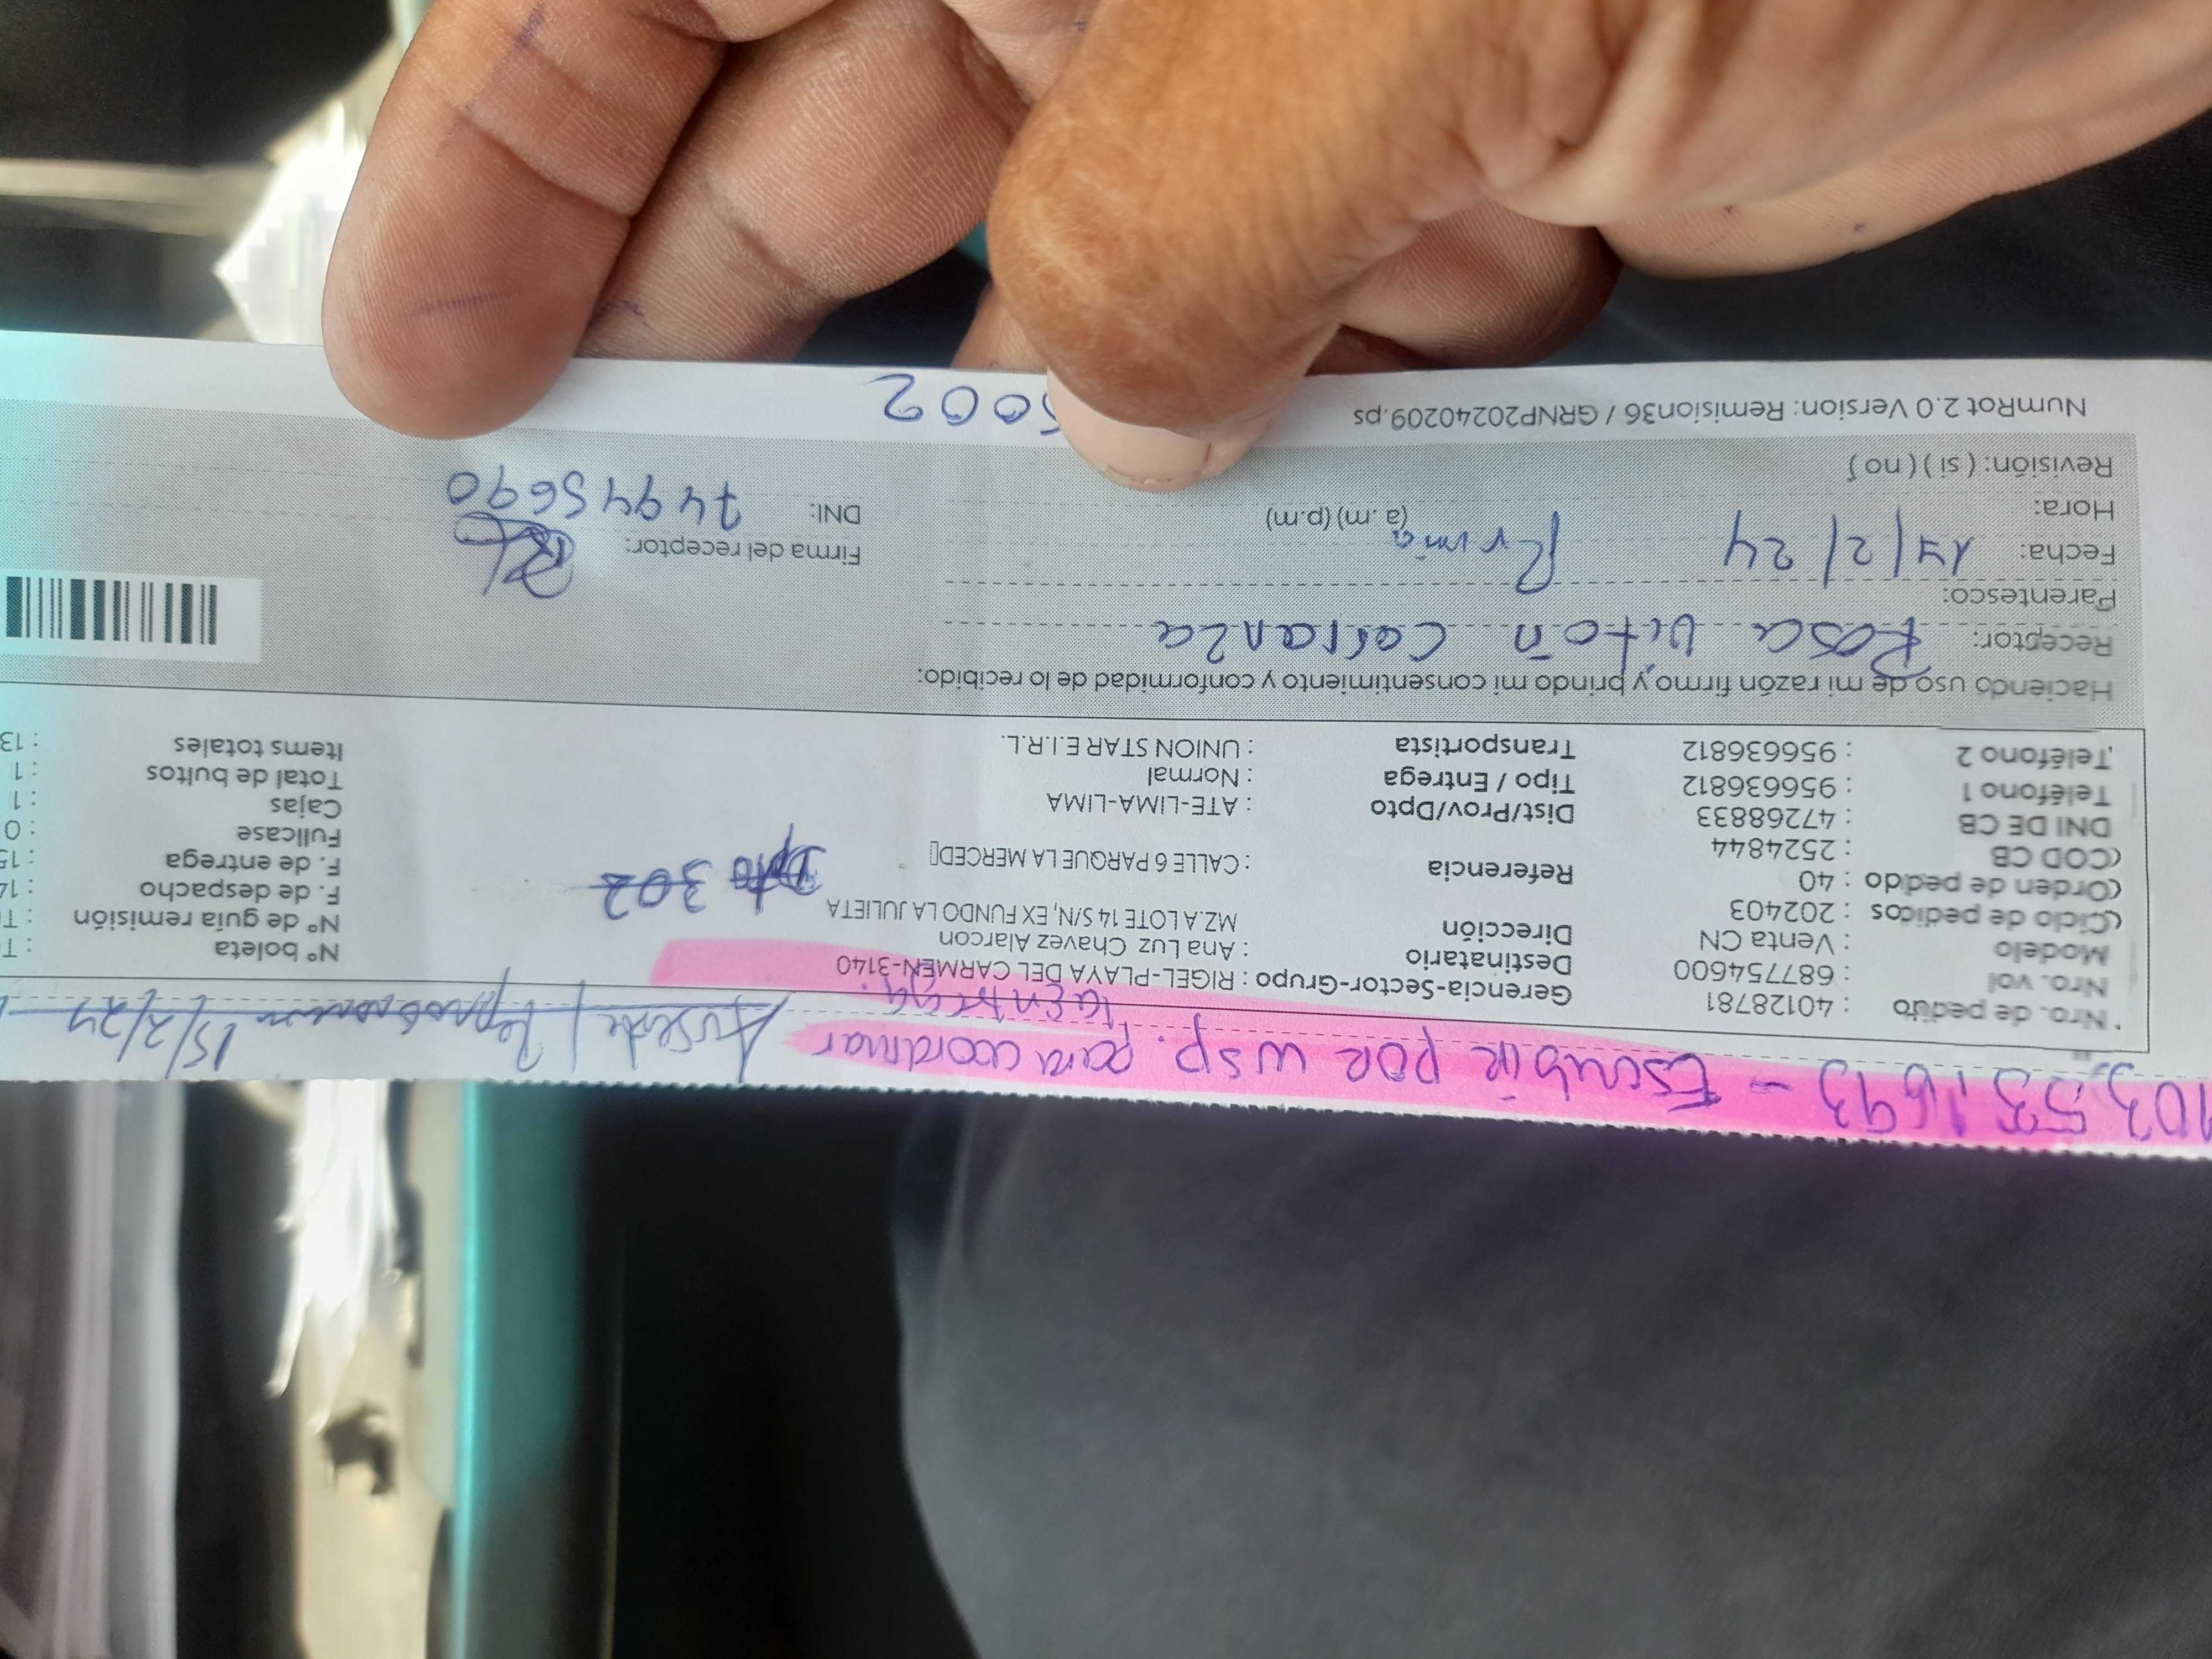 103,531693 - Escribir por wsp. para coordinar
la entrega.
Ausente / 15/2/24
Nro. de pedido : 40128781
Nro. vol : 687754600
Modelo : Venta CN
Ciclo de pedidos : 202403
Orden de pedido : 40
COD CB : 2524844
DNI DE CB : 47268833
Teléfono 1 : 956636812
Teléfono 2 : 956636812
Gerencia-Sector-Grupo : RIGEL-PLAYA DEL CARMEN-3140
Destinatario : Ana Luz Chavez Alarcon
Dirección MZ.A LOTE 14 S/N, EX FUNDO LA JULIETA
Dpto 302
Referencia : CALLE 6 PARQUE LA MERCED
Dist/Prov/Dpto : ATE-LIMA-LIMA
Tipo / Entrega : Normal
Transportista : UNION STAR E.I.R.L.
N° boleta : T
N° de guía remisión : T
F. de despacho : 14
F. de entrega : 15
Fullcase : 0
Cajas : 1
Total de bultos : 1
Items totales : 13
Haciendo uso de mi razón firmo y brindo mi consentimiento y conformidad de lo recibido:
Receptor: Rosa Viton Carranza
Parentesco: Prima
Fecha: 14/2/24
Hora: (a.m) (p.m)
Revisión: ( si ) ( no )
Firma del receptor:
DNI: 74945690
NumRot 2.0 Version: Remision36 / GRNP20240209.ps
5002